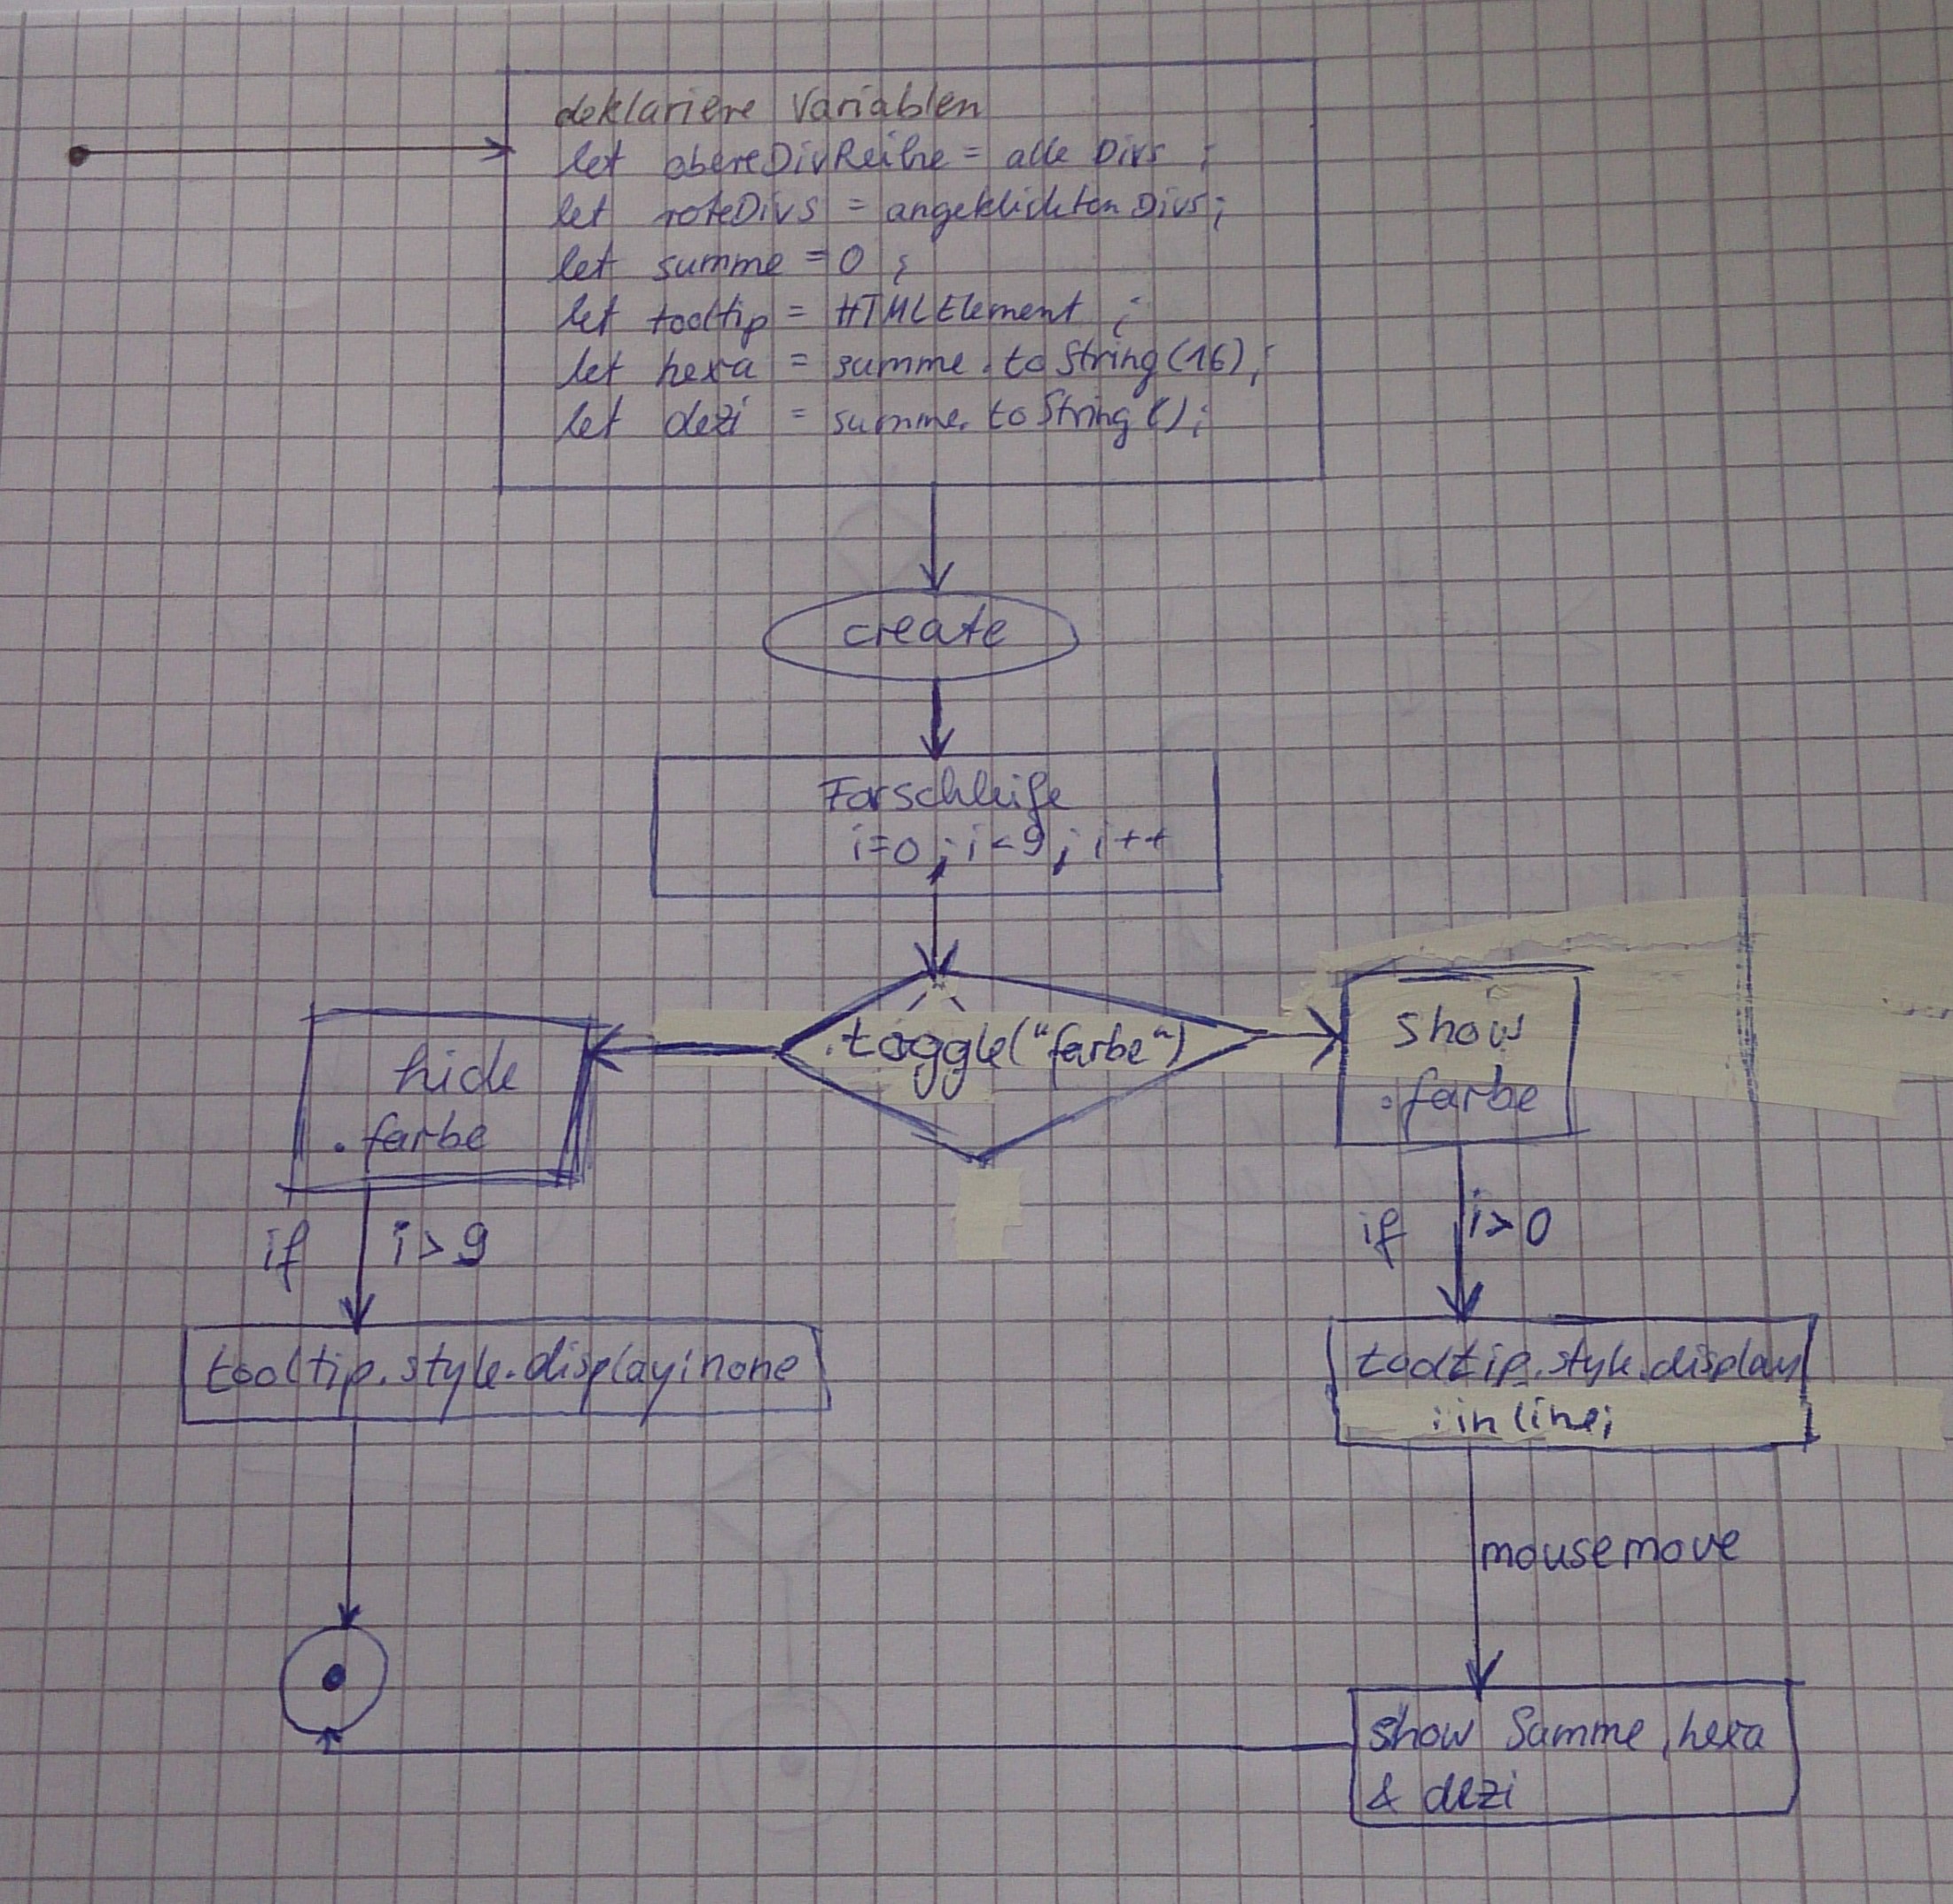 deklariere Variablen
let obereDivReihe = alle Divs ;
let roteDivs = angeklickten Divs;
let summe = 0 ;
let tooltip = HTMLElement ;
let hexa = summe.toString(16);
let dezi = summe.toString();
create
Forschleife
i=0 ; i<9 ; i++
.toggle("farbe")
hide
.farbe
show
.farbe
if i>9
if i>0
tooltip.style.display:none
tooltip.style.display
:inline;
mousemove
show Summe, hexa
& dezi